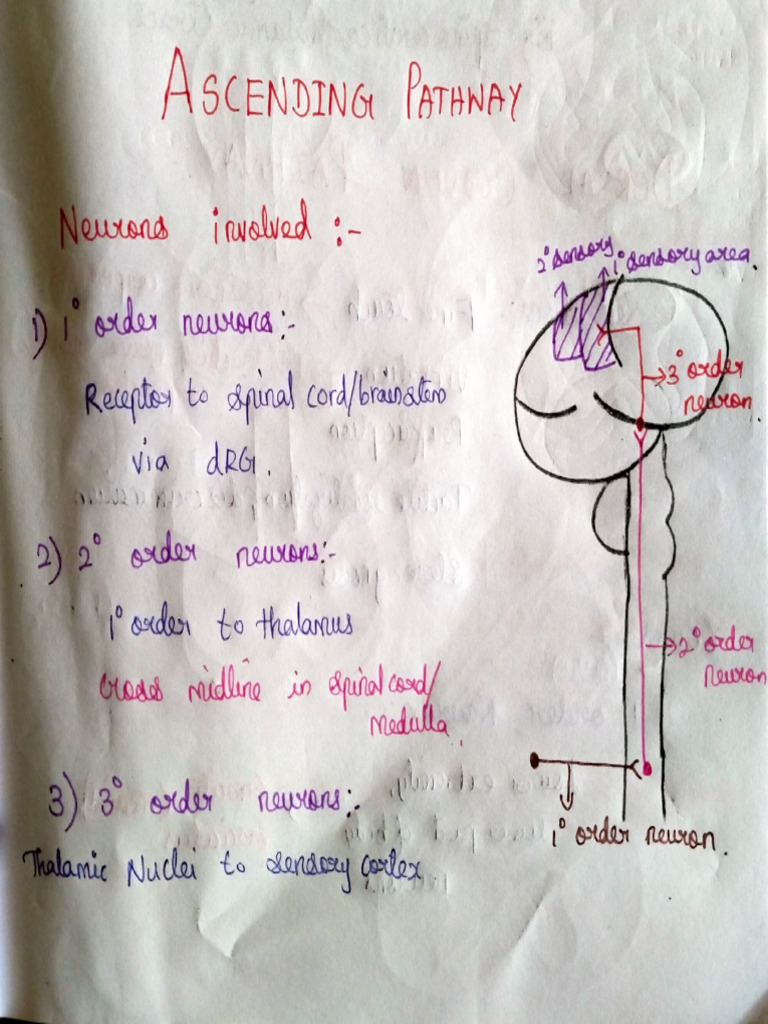 ASCENDING PATHWAY
Neurons involved :-
1) 1° order neurons:-
Receptor to spinal cord/brainstem
via dRG.
2) 2° order neurons:-
1° order to thalamus
Cross midline in spinal cord/
Medulla
3) 3° order neurons:-
Thalamic Nuclei to sensory cortex
2° sensory
1° sensory area.
3° order
neuron
2° order
neuron
1° order neuron.